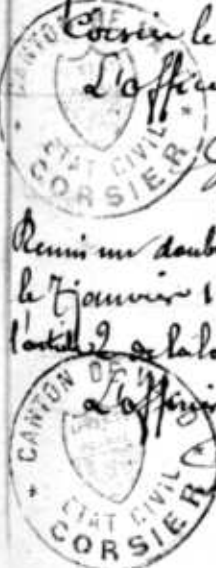 Corsier le
L'offici
CANTON DE
ETAT CIVIL
CORSIER
Remis un doubl
le 7 janvier 1
l'article 2 de la lo
L'offici
CANTON DE
ETAT CIVIL
CORSIER